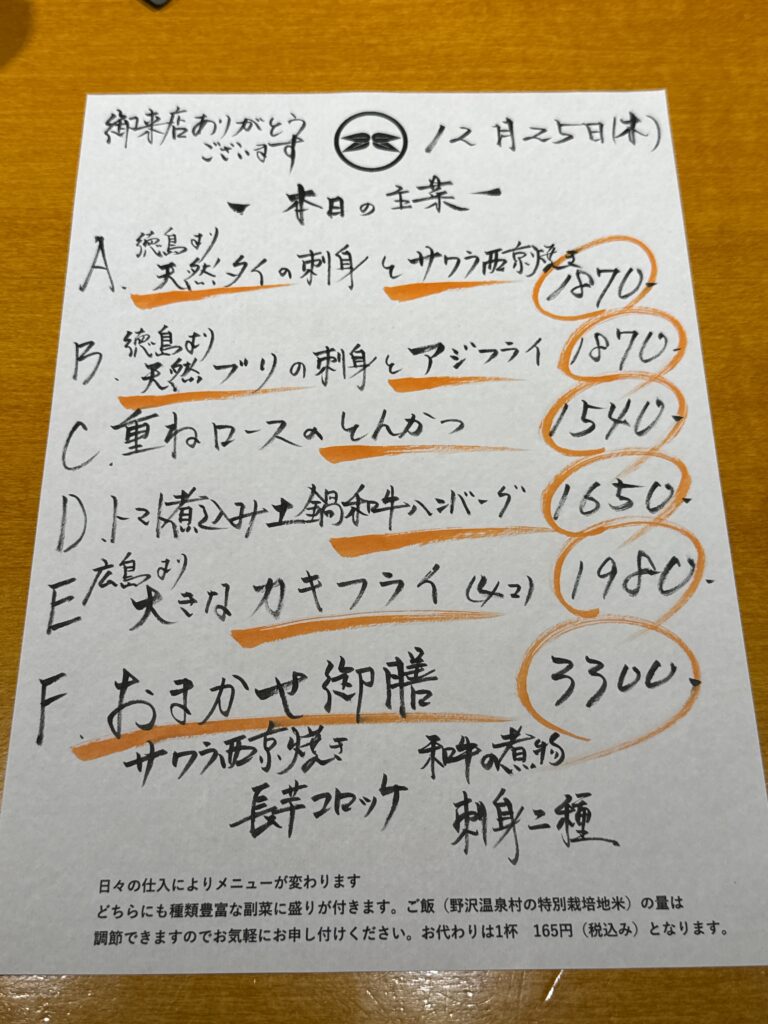 御来店ありがとう
ございます
12月25日(木)
- 本日の主菜 -
A. 徳島より
天然タイの刺身とサワラ西京焼き 1870-
B. 徳島より
天然ブリの刺身とアジフライ 1870-
C. 重ねロースのとんかつ 1540-
D. トマト煮込み土鍋和牛ハンバーグ 1650-
E 広島より
大きなカキフライ(4コ) 1980-
F. おまかせ御膳 3300-
サワラ西京焼き 和牛の煮物
長芋コロッケ 刺身二種
日々の仕入によりメニューが変わります
どちらにも種類豊富な副菜に盛りが付きます。ご飯(野沢温泉村の特別栽培地米)の量は
調節できますのでお気軽にお申し付けください。お代わりは1杯 165円(税込み)となります。